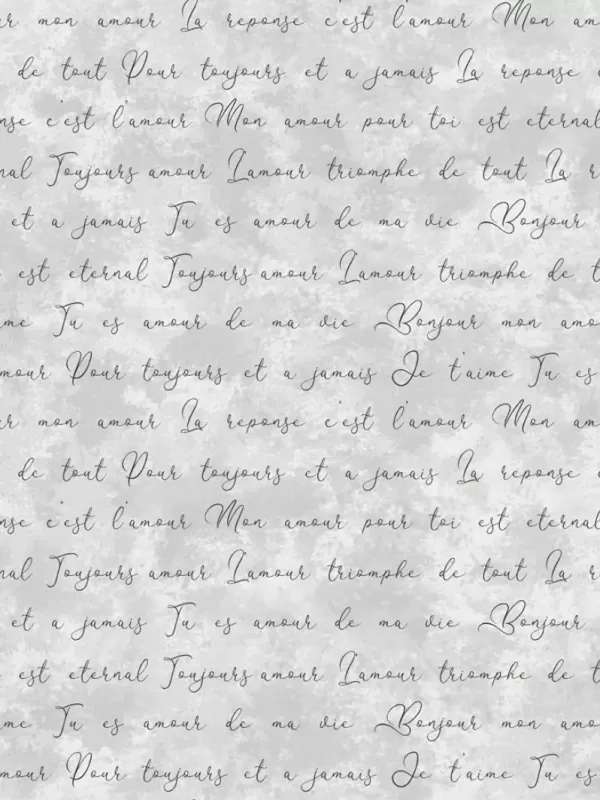 ur mon amour La reponse c'est l'amour Mon am
de tout Pour toujours et a jamais La reponse c
nse c'est l'amour Mon amour pour toi est eternal
nal Toujours amour Lamour triomphe de tout La r
et a jamais Tu es amour de ma vie Bonjour
est eternal Toujours amour Lamour triomphe de t
me Tu es amour de ma vie Bonjour mon amo
mour Pour toujours et a jamais Je t'aime Tu es
ur mon amour La reponse c'est l'amour Mon am
de tout Pour toujours et a jamais La reponse c
nse c'est l'amour Mon amour pour toi est eternal
nal Toujours amour Lamour triomphe de tout La r
et a jamais Tu es amour de ma vie Bonjour
est eternal Toujours amour Lamour triomphe de t
me Tu es amour de ma vie Bonjour mon amo
mour Pour toujours et a jamais Je t'aime Tu es